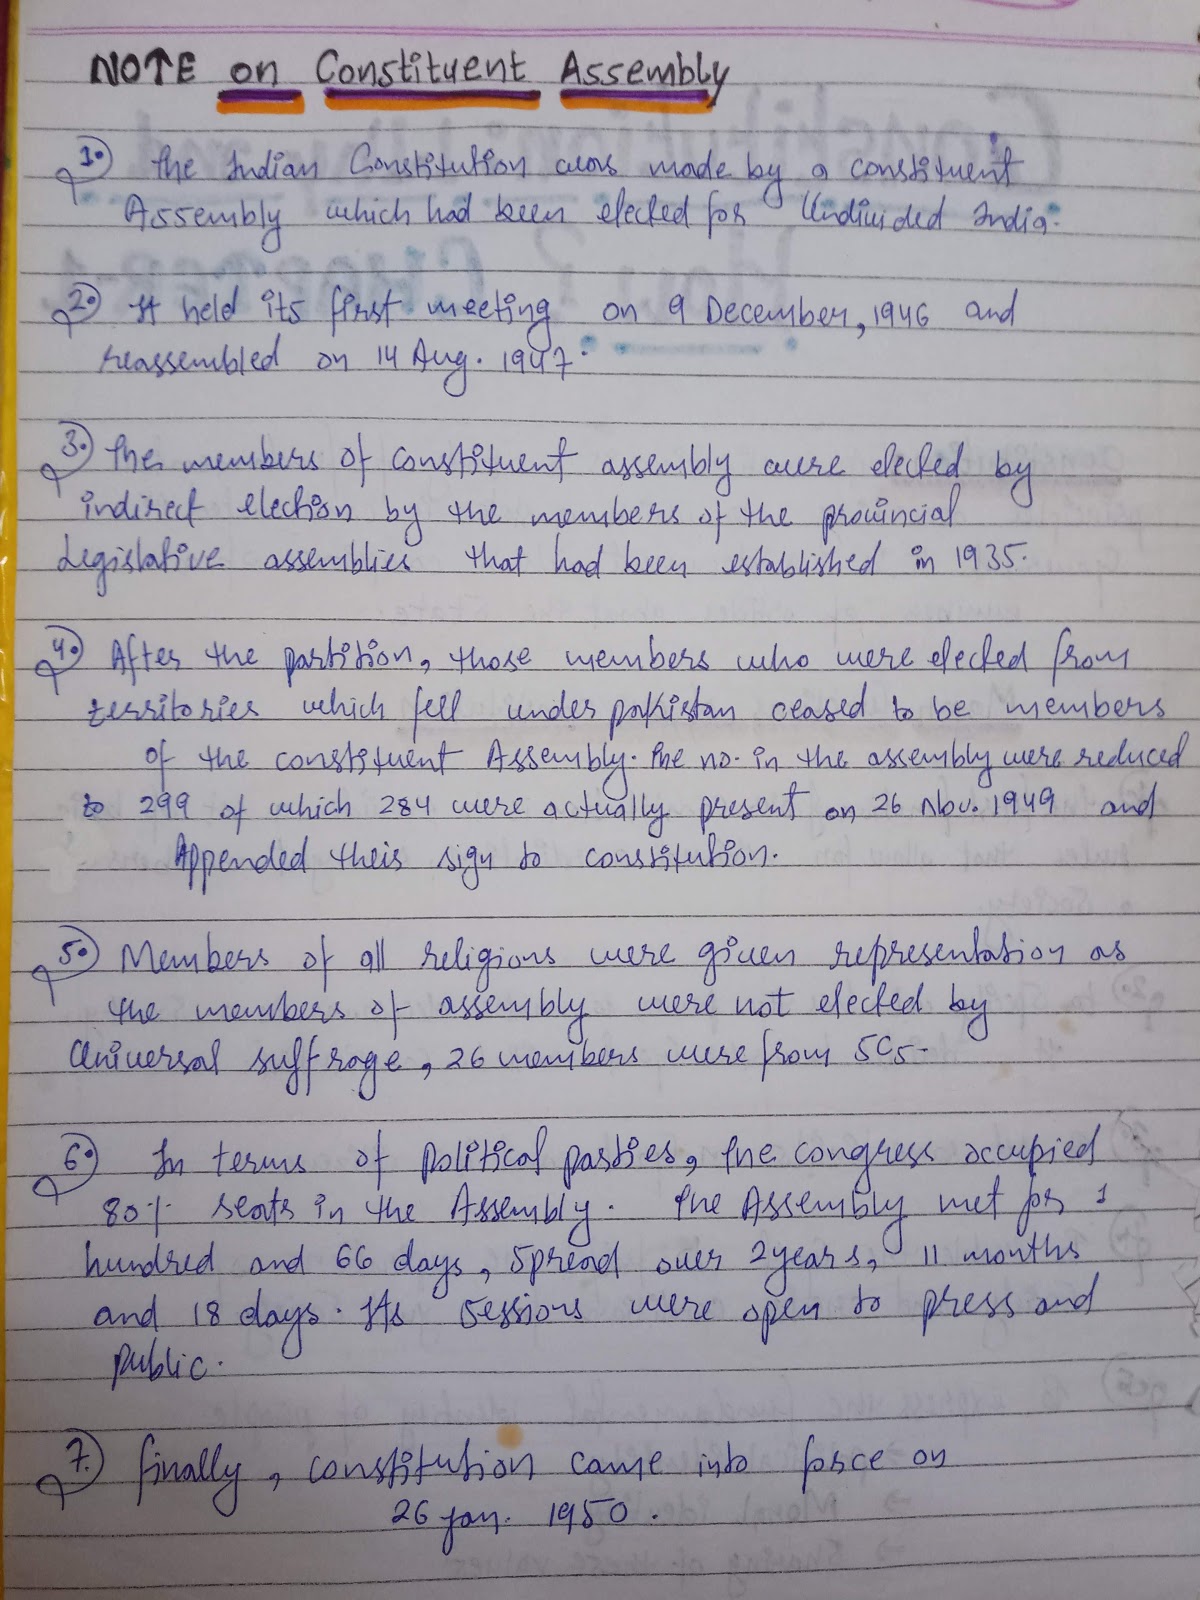 NOTE on Constituent Assembly
1. The Indian Constitution was made by a constituent
Assembly which had been elected for Undivided India.
2. It held its first meeting on 9 December, 1946 and
reassembled on 14 Aug. 1947.
3. The members of constituent assembly were elected by
indirect election by the members of the provincial
Legislative assemblies that had been established in 1935.
4. After the partition, those members who were elected from
territories which fell under pakistan ceased to be members
of the constituent Assembly. The no. in the assembly were reduced
to 299 of which 284 were actually present on 26 Nov. 1949 and
Appended their sign to constitution.
5. Members of all religions were given representation as
the members of assembly were not elected by
Universal suffrage, 26 members were from SCs.
6. In terms of political parties, the congress occupied
80% seats in the Assembly. The Assembly met for 1
hundred and 66 days, spread over 2 years, 11 months
and 18 days. Its sessions were open to press and
public.
7. finally, constitution came into force on
26 jan. 1950.